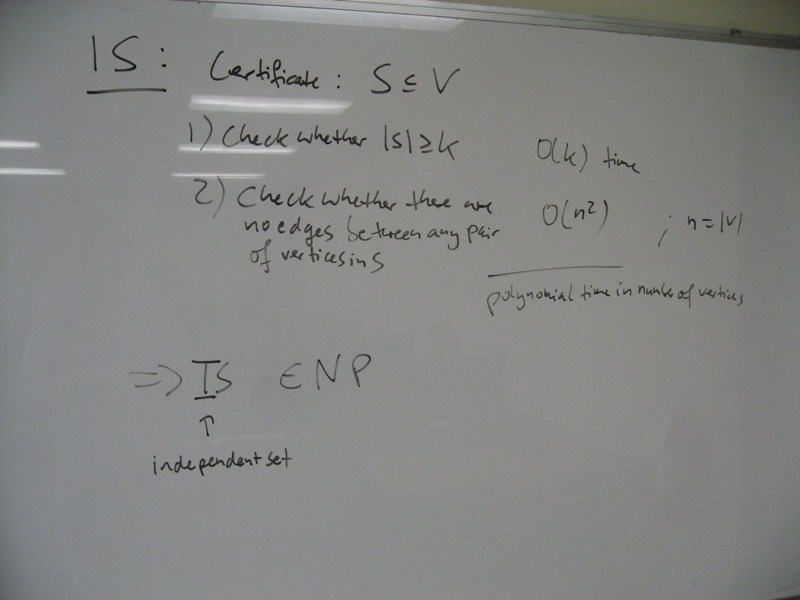 IS: Certificate: S ⊆ V
1) Check whether |S| ≥ k O(k) time
2) Check whether there are O(n²) ; n = |V|
no edges between any pair
of vertices in S
polynomial time in number of vertices
⇒ IS ∈ NP
↑
independent set